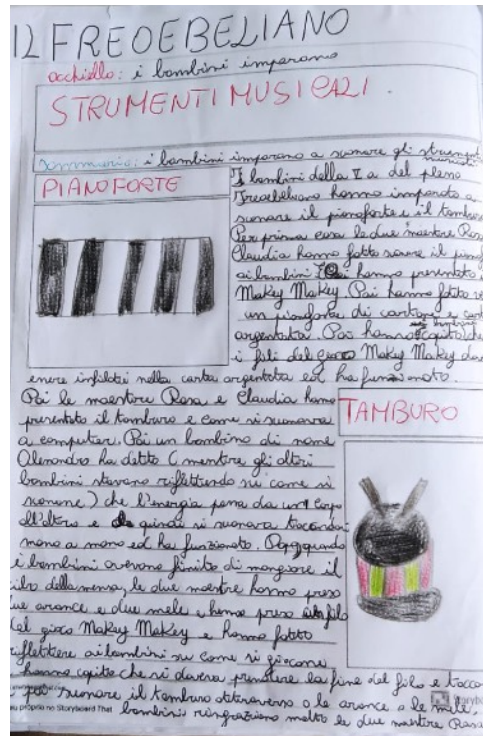 12 FREOEBELIANO
occhiello: i bambini imparano
STRUMENTI MUSICALI.
sommario: i bambini imparano a suonare gli strumenti musicali
PIANOFORTE
I bambini della V a del plesso
Froebeliano hanno imparato a
suonare il pianoforte e il tamburo
Per prima cosa le due maestre Rosa
Claudia hanno fatto
ai bambini Poi hanno presentato
Makey Makey. Poi hanno fatto
un pianoforte di cartone e carta
argentata. Poi hanno capito che
i fili del gioco Makey Makey
enere infilati nella carta argentata ed ha funzionato.
Poi le maestre Rosa e Claudia hanno
presentato il tamburo e come si suonava
a computer. Poi un bambino di nome
Alessandro ha detto (mentre gli altri
bambini stavano riflettendo su come si
suonasse) che l'energia passa da un corpo
all'altro e quindi si suonava toccandosi
mano a mano ed ha funzionato. quando
i bambini avevano finito di mangiare il
cibo della mensa, le due maestre hanno preso
due arance e due mele e hanno preso un filo
del gioco Makey Makey e hanno fatto
riflettere ai bambini su come si giocasse
hanno capito che si doveva prendere la fine del filo e tocca
poi suonare il tamburo attraverso o le arance o le mele,
bambini ringraziano molto le due maestre Rosa
TAMBURO
proprio no Storyboard That